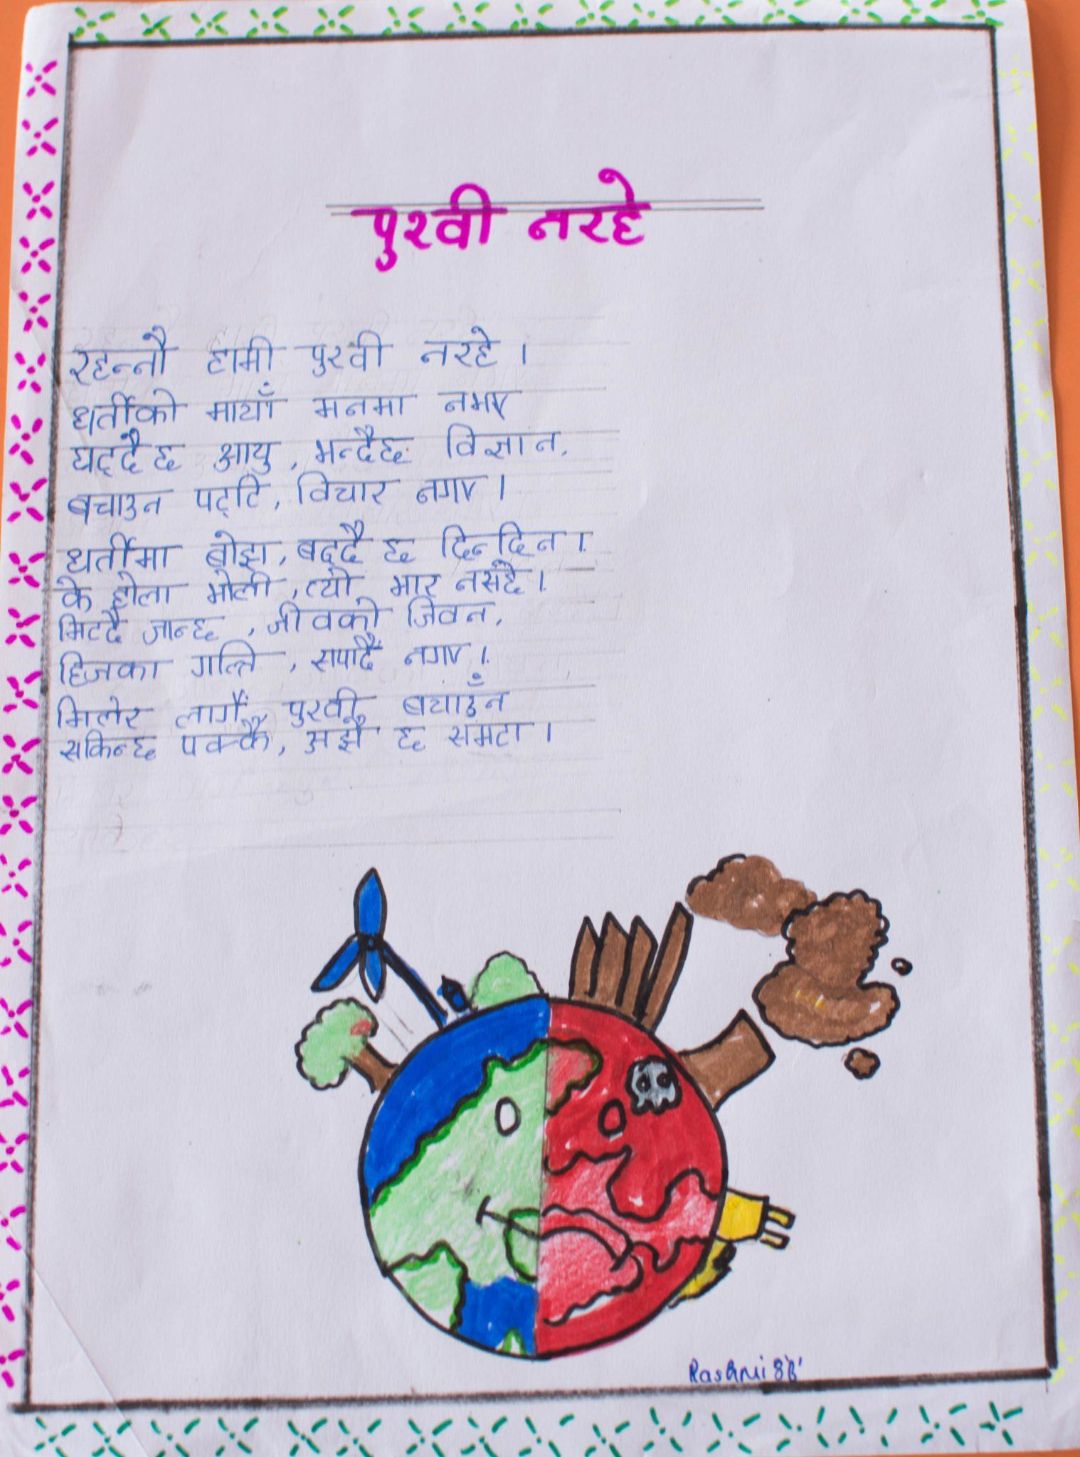 पुरवी नरहे
रहन्नौ हामी पुरवी नरहे ।
धर्तीको मायाँ मनमा नभए
घट्दैछ आयु , भन्दैछ विज्ञान,
बचाउन पट्टि, विचार नगए ।
धर्तीमा बोझ, बढ्दै छ दिन्दिन ।
के होला भोली , त्यो भार नसहँदै ।
मिट्दै जान्छ , जीवको जिवन,
हिजका गल्ति , सपार्दै नगए ।
मिलेर लागौं पुरवी बचाउँन
सकिन्छ पक्कै, अझै छ समटा ।
Rashmi 8'B'